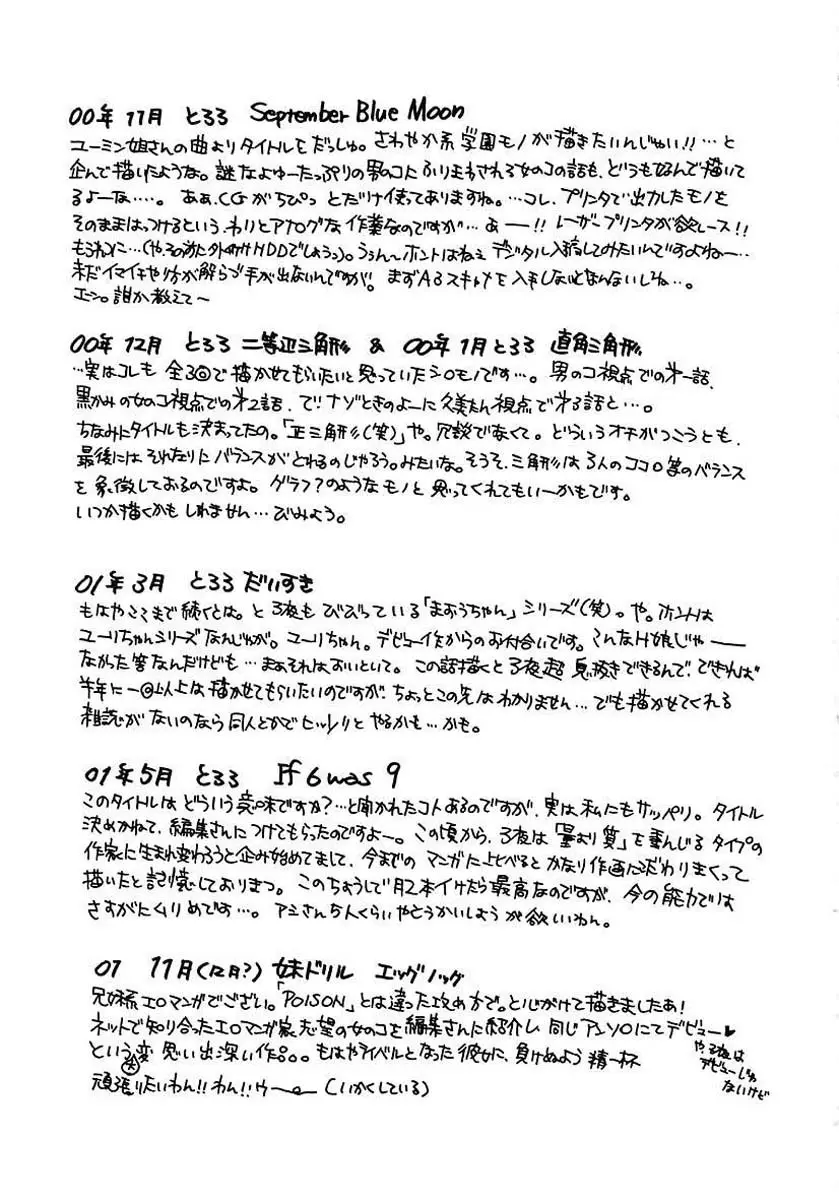 00年11月 とろろ September Blue Moon
ユーミン姐さんの曲よりタイトルをだっしゅ。さわやか系学園モノが描きたいんじゃい!!…と
企んで描いたような。謎なよゆーたっぷりの男のコにふりまわされる女のコの話も、どうもなんで描いて
るよーな…。ああ、CGがちぴっとだけ使ってありますね。…コレ、プリンタで出力したモノを
そのままはっつけるという、わりとアナログな作業なのですが…あー!!レーザープリンタが欲レース!!
もうれつに…(や、その前に外付けHDDでしょうっ)。ううん〜ホントはねえデジタル入稿してみたいんですよねー…
未だイマイチやり方が解らず手が出ないんですが。まずA3スキャナを入手しないとなんないしね…。
エーン。誰か教えて〜
00年12月 とろろ 二等辺三角形 & 00年1月とろろ 直角三角形
…実はコレも全3回で描かせてもらいたいと思っていたシロモノです…。男のコ視点での第一話、
黒かみの女のコ視点での第2話、で!!ナゾときのよーに久美たん視点で第3話と…。
ちなみにタイトルも決まってたの。「正三角形(笑)」や。冗談でなくて。どういうオチがつこうとも、
最後にはそれなりにバランスがとれるのじゃろう。みたいな。そうそ、三角形は3人のココロ等のバランス
を象徴しておるのですよ。グラフ?のようなモノと思ってくれてもいーかもです。
いつか描くかもしれません…びみょう。
01年3月 とろろ だいすき
もはやここまで続くとは。と子夜もびびっている「まおうちゃん」シリーズ(笑)。や。ホントは
ユーリちゃんシリーズなんじゃが。ユーリちゃん。デビュー作からのお付合いです。こんなH娘じゃ――
なかった筈なんだけども…まぁそれはおいといて。この話描くと子夜超息抜きできるんで、できれば
半年に一回以上は描かせてもらいたいのですが、ちょっとこの先はわかりません…でも描かせてくれる
雑誌がないのなら同人とかでヒッソリとやるかも…かも。
01年5月 とろろ If 6 was 9
このタイトルはどういう意味ですか?…と聞かれたコトあるのですが、実は私にもサッパリ。タイトル
決めかねて、編集さんにつけてもらったのですよー。この頃から、子夜は「量より質」を重んじるタイプの
作家に生まれ変わろうと企み始めてまして、今までのマンガに比べるとかなり作画にこだわりまくって
描いたと記憶しておりまつ。このちょうしで月2本イけたら最高なのですが、今の能力では
さすがにムリめです…。アシさん5人くらいやとうかいしょうが欲しいわん。
01 11月(12月?) 妹ドリル エッグノッグ
兄妹系エロマンガでございー。「POISON」とは違った攻め方で。と心がけて描きましたあ!
ネットで知り合ったエロマンガ家志望の女のコを編集さんに紹介し、同じアンソにてデビュー♥
や、子夜は
デビューじゃ
ないけど
という変思い出深い作品。もはやライバルとなった彼女に、負けぬよう精一杯
頑張りたいわん!!わん!!ウ〜 (いかくしている)